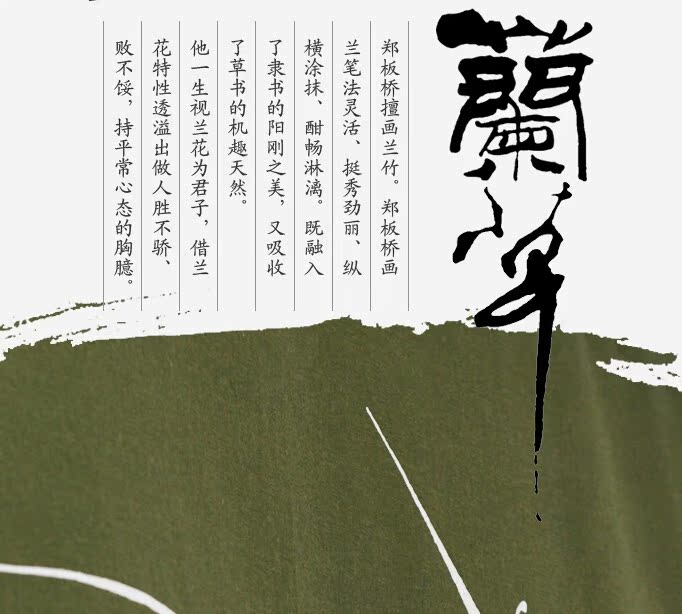 蘭草
郑板桥擅画兰竹。郑板桥画
兰笔法灵活、挺秀劲丽、纵
横涂抹、酣畅淋漓。既融入
了隶书的阳刚之美，又吸收
了草书的机趣天然。
他一生视兰花为君子，借兰
花特性透溢出做人胜不骄、
败不馁，持平常心态的胸臆。